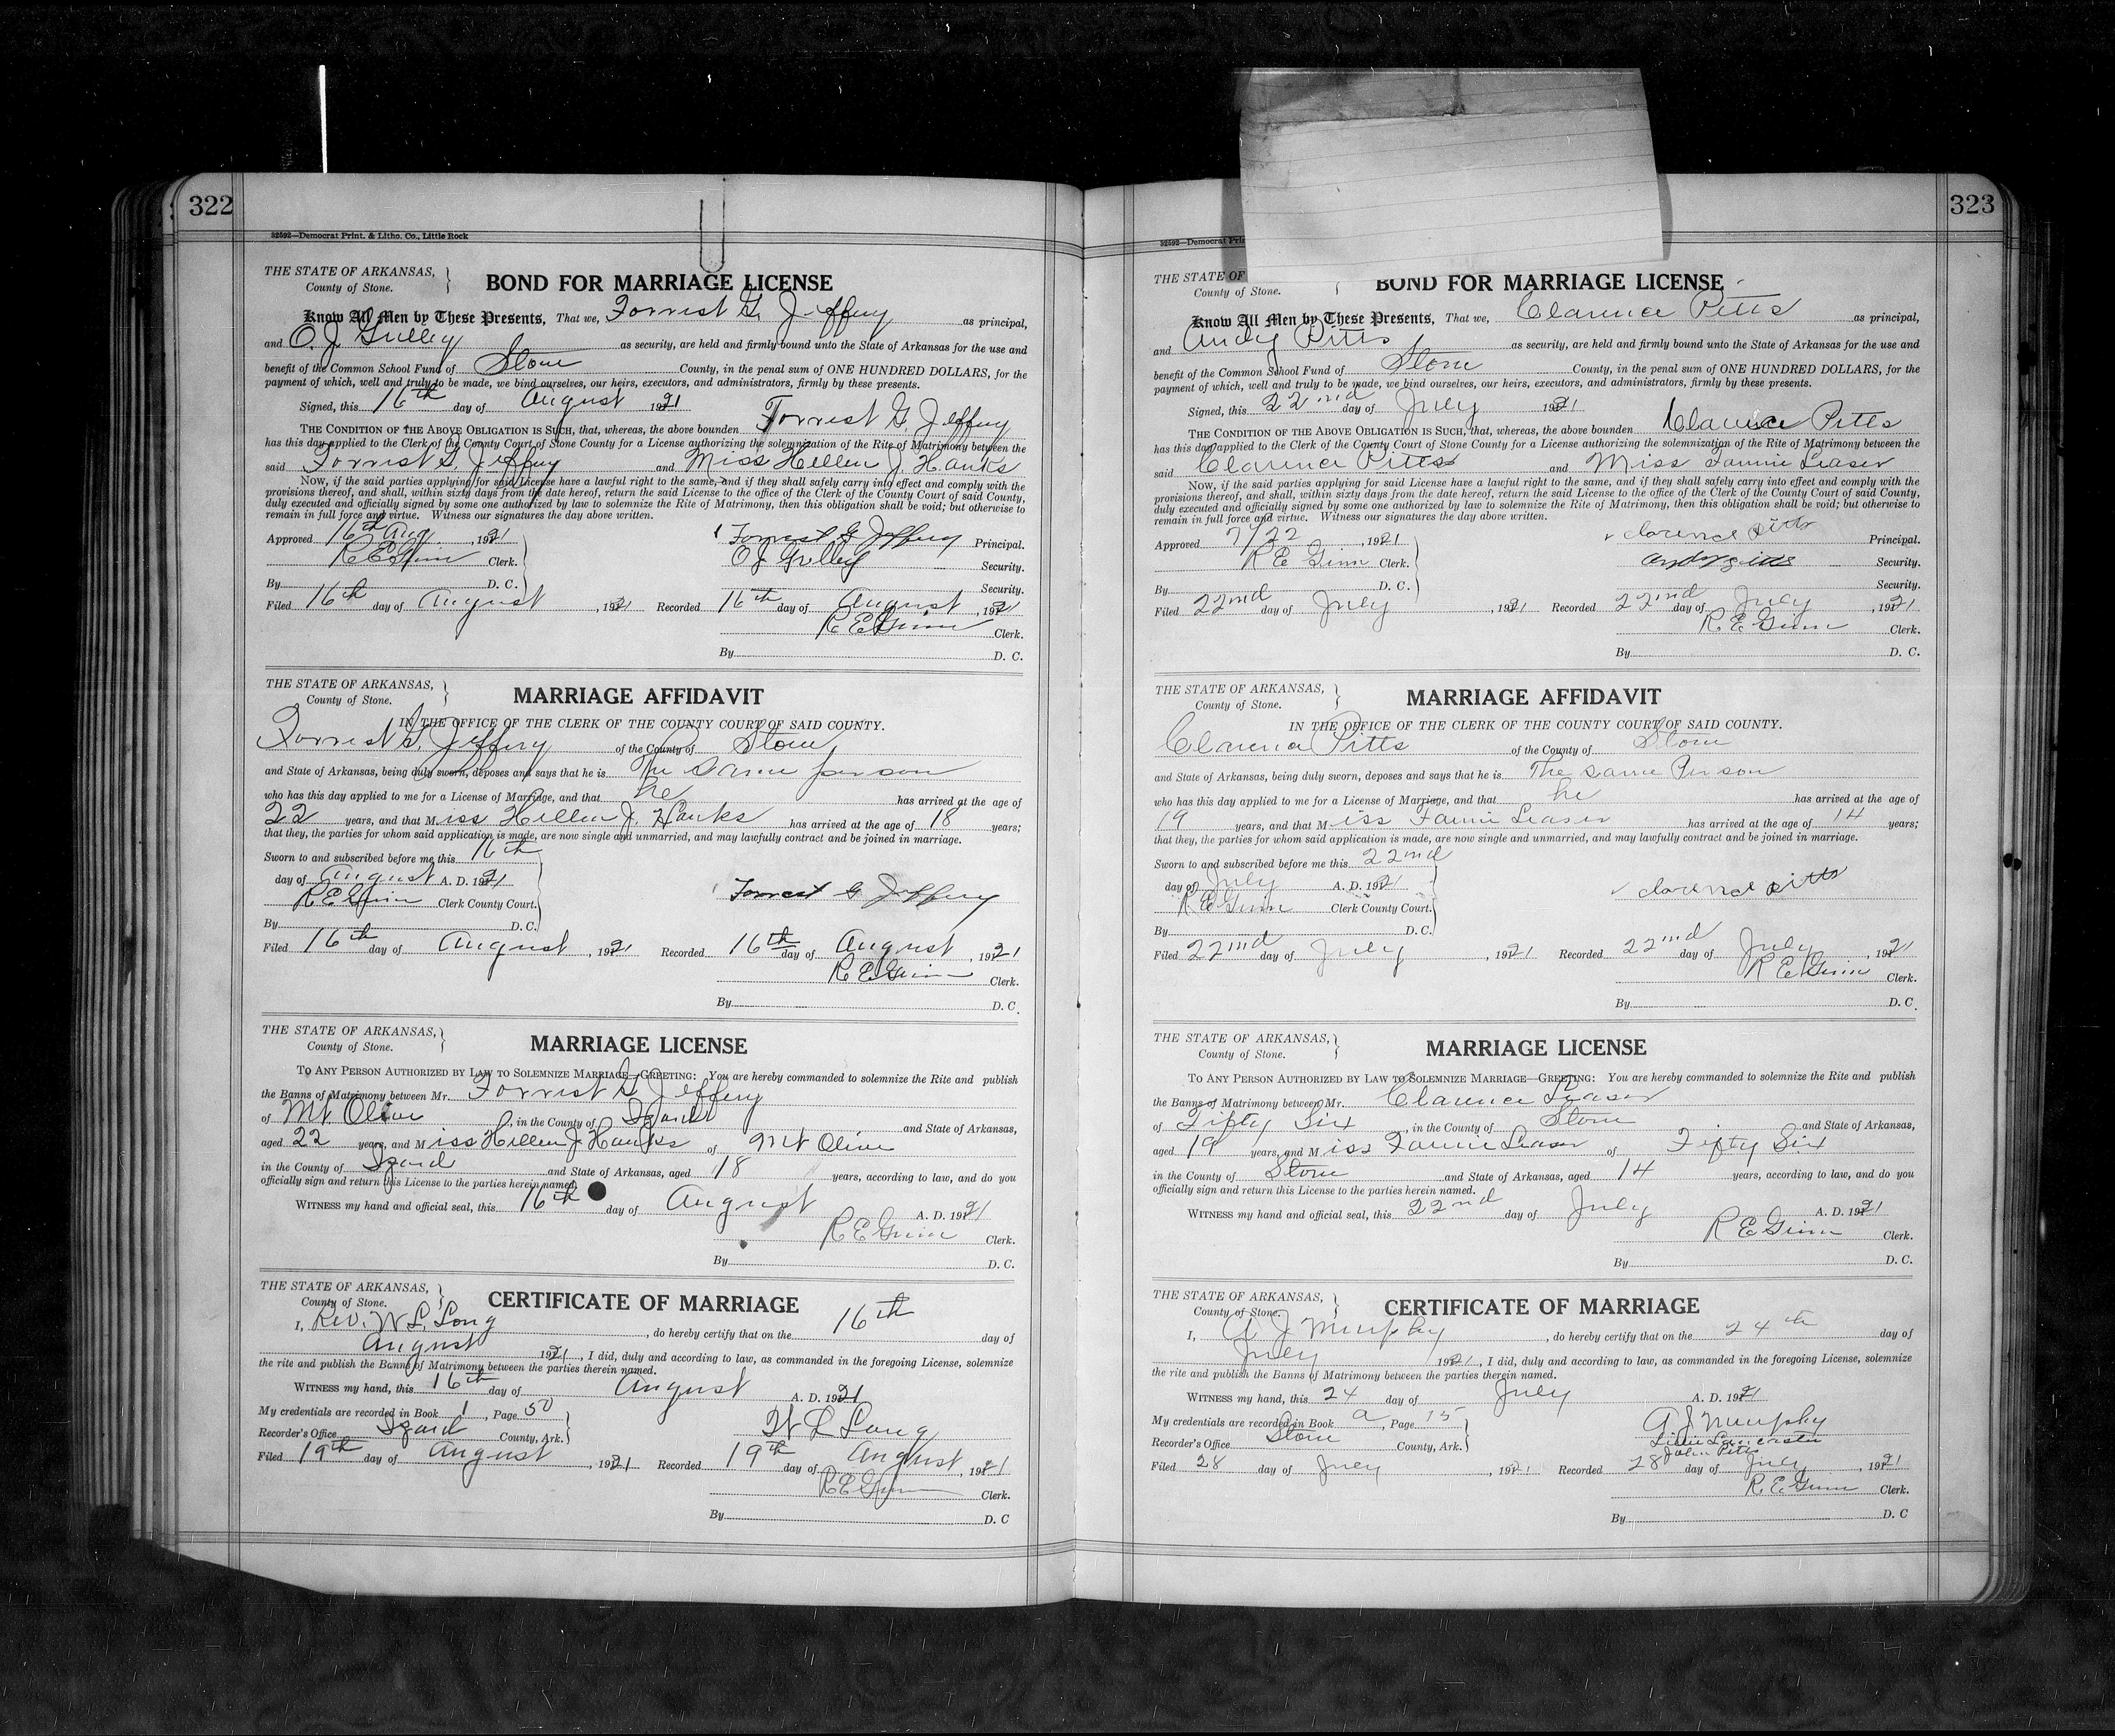 322
32592—Democrat Print. & Litho. Co., Little Rock
THE STATE OF ARKANSAS,
County of Stone.
BOND FOR MARRIAGE LICENSE
Know All Men by These Presents, That we, Forrest G. Jeffery as principal,
and O. J. Gulley as security, are held and firmly bound unto the State of Arkansas for the use and
benefit of the Common School Fund of Stone County, in the penal sum of ONE HUNDRED DOLLARS, for the
payment of which, well and truly to be made, we bind ourselves, our heirs, executors, and administrators, firmly by these presents.
Signed, this 16th day of August 1921
THE CONDITION OF THE ABOVE OBLIGATION IS SUCH, that, whereas, the above bounden Forrest G. Jeffery
has this day applied to the Clerk of the County Court of Stone County for a License authorizing the solemnization of the Rite of Matrimony between the
said Forrest G. Jeffery and Miss Hellen J. Hanks
Now, if the said parties applying for said License have a lawful right to the same, and if they shall safely carry into effect and comply with the
provisions thereof, and shall, within sixty days from the date hereof, return the said License to the office of the Clerk of the County Court of said County,
duly executed and officially signed by some one authorized by law to solemnize the Rite of Matrimony, then this obligation shall be void; but otherwise to
remain in full force and virtue. Witness our signatures the day above written.
Approved 16th Aug, 1921 Forrest G Jeffery Principal.
R E Ginn Clerk. O J Gulley Security.
By D. C. Security.
Filed 16th day of August, 1921 Recorded 16th day of August, 1921
R E Ginn Clerk.
By D. C.
THE STATE OF ARKANSAS,
County of Stone.
MARRIAGE AFFIDAVIT
IN THE OFFICE OF THE CLERK OF THE COUNTY COURT OF SAID COUNTY.
Forrest G. Jeffery of the County of Stone
and State of Arkansas, being duly sworn, deposes and says that he is The same person
who has this day applied to me for a License of Marriage, and that he has arrived at the age of
22 years, and that Miss Hellen J. Hanks has arrived at the age of 18 years;
that they, the parties for whom said application is made, are now single and unmarried, and may lawfully contract and be joined in marriage.
Sworn to and subscribed before me this 16th
day of August A. D. 1921
R E Ginn Clerk County Court. Forrest G Jeffery
By D.C.
Filed 16th day of August, 1921 Recorded 16th day of August, 1921
R E Ginn Clerk.
By D. C.
THE STATE OF ARKANSAS,
County of Stone.
MARRIAGE LICENSE
TO ANY PERSON AUTHORIZED BY LAW TO SOLEMNIZE MARRIAGE—GREETING: You are hereby commanded to solemnize the Rite and publish
the Banns of Matrimony between Mr. Forrest G Jeffery
of Mt Olive, in the County of Izard and State of Arkansas,
aged 22 years, and Miss Hellen J. Hanks of Mt Olive
in the County of Izard and State of Arkansas, aged 18 years, according to law, and do you
officially sign and return this License to the parties herein named.
WITNESS my hand and official seal, this 16th day of August A. D. 1921
R E Ginn Clerk.
By D. C.
THE STATE OF ARKANSAS,
County of Stone.
CERTIFICATE OF MARRIAGE
I, Rev. W L Long, do hereby certify that on the 16th day of
August 1921, I did, duly and according to law, as commanded in the foregoing License, solemnize
the rite and publish the Banns of Matrimony between the parties therein named.
WITNESS my hand, this 16th day of August A. D. 1921
My credentials are recorded in Book 1, Page 50
Recorder's Office Izard County, Ark. W L Long
Filed 19th day of August, 1921 Recorded 19th day of August, 1921
R E Ginn Clerk.
By D. C
323
32592—Democrat Prin
THE STATE OF
County of Stone.
BOND FOR MARRIAGE LICENSE
Know All Men by These Presents, That we, Clarence Pitts as principal,
and Andy Pitts as security, are held and firmly bound unto the State of Arkansas for the use and
benefit of the Common School Fund of Stone County, in the penal sum of ONE HUNDRED DOLLARS, for the
payment of which, well and truly to be made, we bind ourselves, our heirs, executors, and administrators, firmly by these presents.
Signed, this 22nd day of July 1921
THE CONDITION OF THE ABOVE OBLIGATION IS SUCH, that, whereas, the above bounden Clarence Pitts
has this day applied to the Clerk of the County Court of Stone County for a License authorizing the solemnization of the Rite of Matrimony between the
said Clarence Pitts and Miss Fannie Leaser
Now, if the said parties applying for said License have a lawful right to the same, and if they shall safely carry into effect and comply with the
provisions thereof, and shall, within sixty days from the date hereof, return the said License to the office of the Clerk of the County Court of said County,
duly executed and officially signed by some one authorized by law to solemnize the Rite of Matrimony, then this obligation shall be void; but otherwise to
remain in full force and virtue. Witness our signatures the day above written.
Approved 7/22, 1921 clorence pitts Principal.
R E Ginn Clerk. andy pitts Security.
By D. C. Security.
Filed 22nd day of July, 1921 Recorded 22nd day of July, 1921
R E Ginn Clerk.
By D. C.
THE STATE OF ARKANSAS,
County of Stone.
MARRIAGE AFFIDAVIT
IN THE OFFICE OF THE CLERK OF THE COUNTY COURT OF SAID COUNTY.
Clarence Pitts of the County of Stone
and State of Arkansas, being duly sworn, deposes and says that he is The same Person
who has this day applied to me for a License of Marriage, and that he has arrived at the age of
19 years, and that Miss Fannie Leaser has arrived at the age of 14 years;
that they, the parties for whom said application is made, are now single and unmarried, and may lawfully contract and be joined in marriage.
Sworn to and subscribed before me this 22nd
day of July A. D. 1921
R E Ginn Clerk County Court. clorence pitts
By D.C.
Filed 22nd day of July, 1921 Recorded 22nd day of July, 1921
R E Ginn Clerk.
By D. C
THE STATE OF ARKANSAS,
County of Stone.
MARRIAGE LICENSE
TO ANY PERSON AUTHORIZED BY LAW TO SOLEMNIZE MARRIAGE—GREETING: You are hereby commanded to solemnize the Rite and publish
the Banns of Matrimony between Mr. Clarence Leaser
of Fifty Six, in the County of Stone and State of Arkansas,
aged 19 years, and Miss Fannie Leaser of Fifty Six
in the County of Stone and State of Arkansas, aged 14 years, according to law, and do you
officially sign and return this License to the parties herein named.
WITNESS my hand and official seal, this 22nd day of July A. D. 1921
R E Ginn Clerk.
By D. C.
THE STATE OF ARKANSAS,
County of Stone.
CERTIFICATE OF MARRIAGE
I, A J Murphy, do hereby certify that on the 24th day of
July 1921, I did, duly and according to law, as commanded in the foregoing License, solemnize
the rite and publish the Banns of Matrimony between the parties therein named.
WITNESS my hand, this 24 day of July A. D. 1921
My credentials are recorded in Book a, Page 15 A J Murphy
Recorder's Office Stone County, Ark. Lancaster
John Pitts
Filed 28 day of July, 1921 Recorded 28 day of July, 1921
R. E. Ginn Clerk.
By D. C